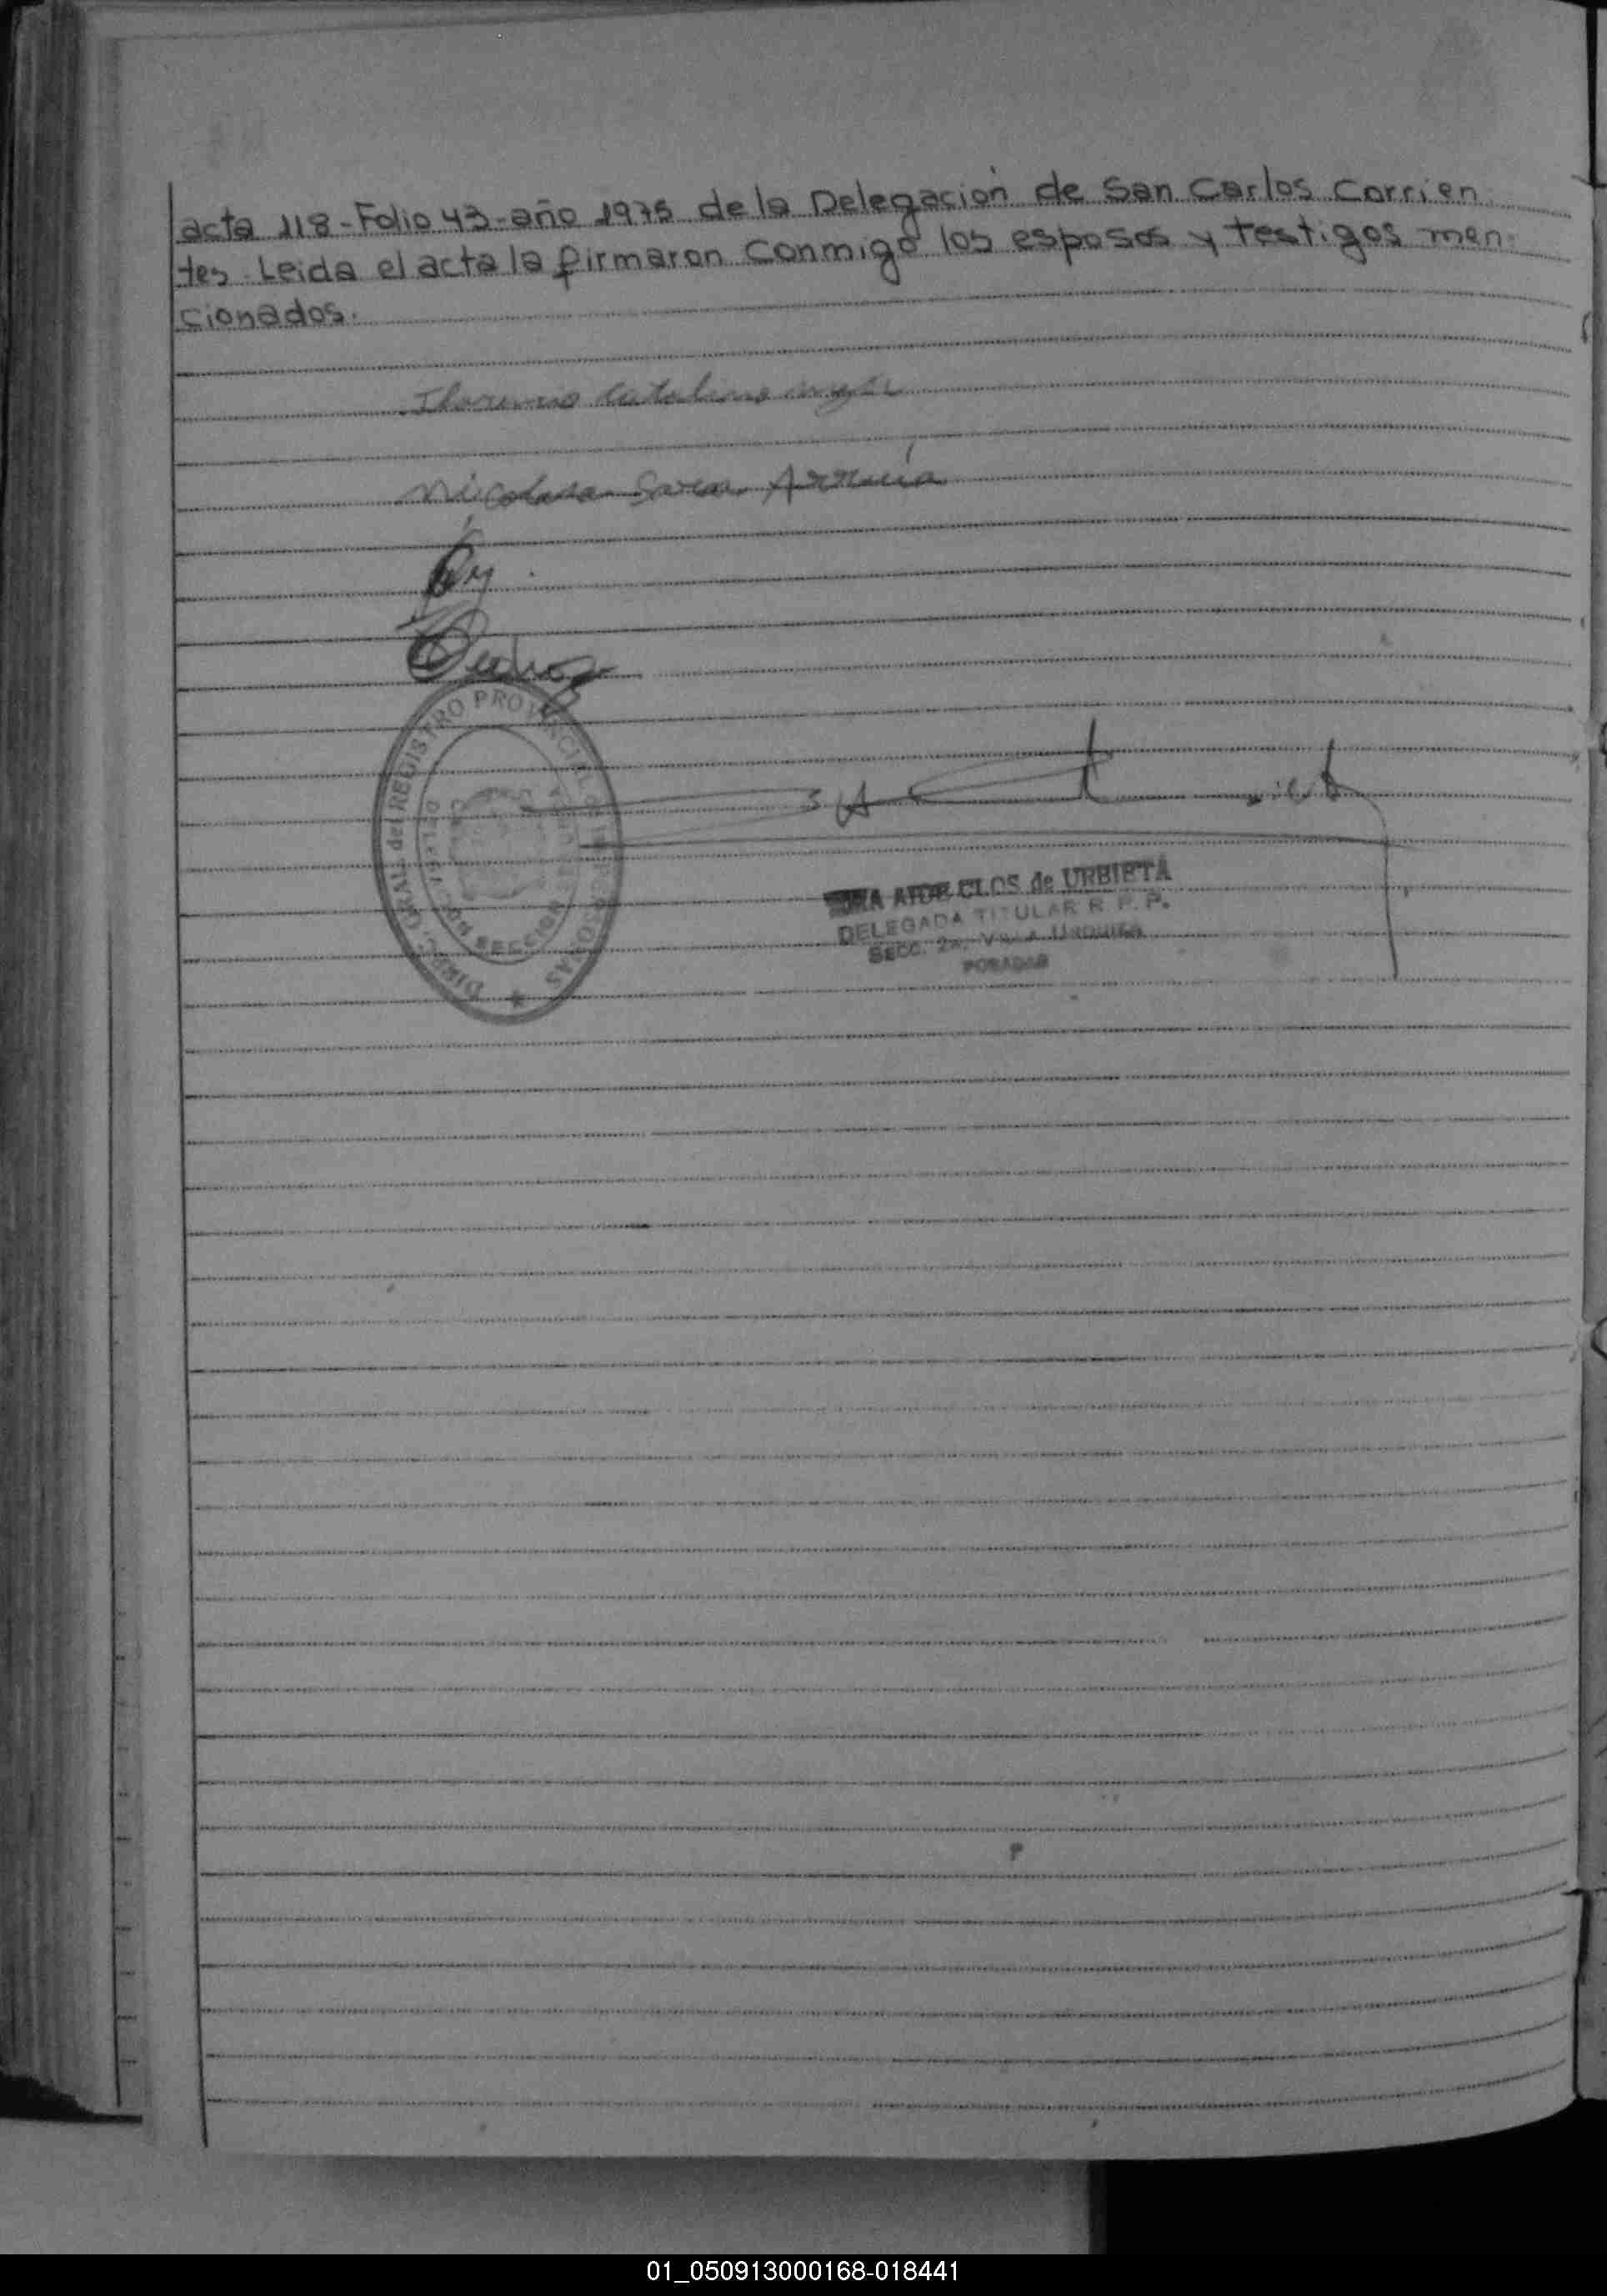 acta 118-Folio 43-año 1975 de la Delegación de San Carlos Corrien
tes. Leida el acta la firmaron conmigo los esposos y testigos men
cionados.
Nicolasa
DIREC. GRAL. del REGISTRO PROVINCIAL DE LAS PERSONAS
SECCION
AIDE CLOS de URBIETA
DELEGADA TITULAR R. P. P.
Secc. 2a. Villa Urquiza
POSADAS
01_050913000168-018441